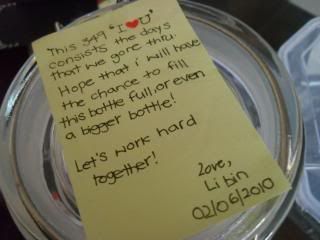 This 349 "I ❤ U"
consists the days
that we gone thru.
Hope that i will have
the chance to fill
this bottle full, or even
a bigger bottle!
Let's work hard
together!
Love,
Li bin
02/06/2010